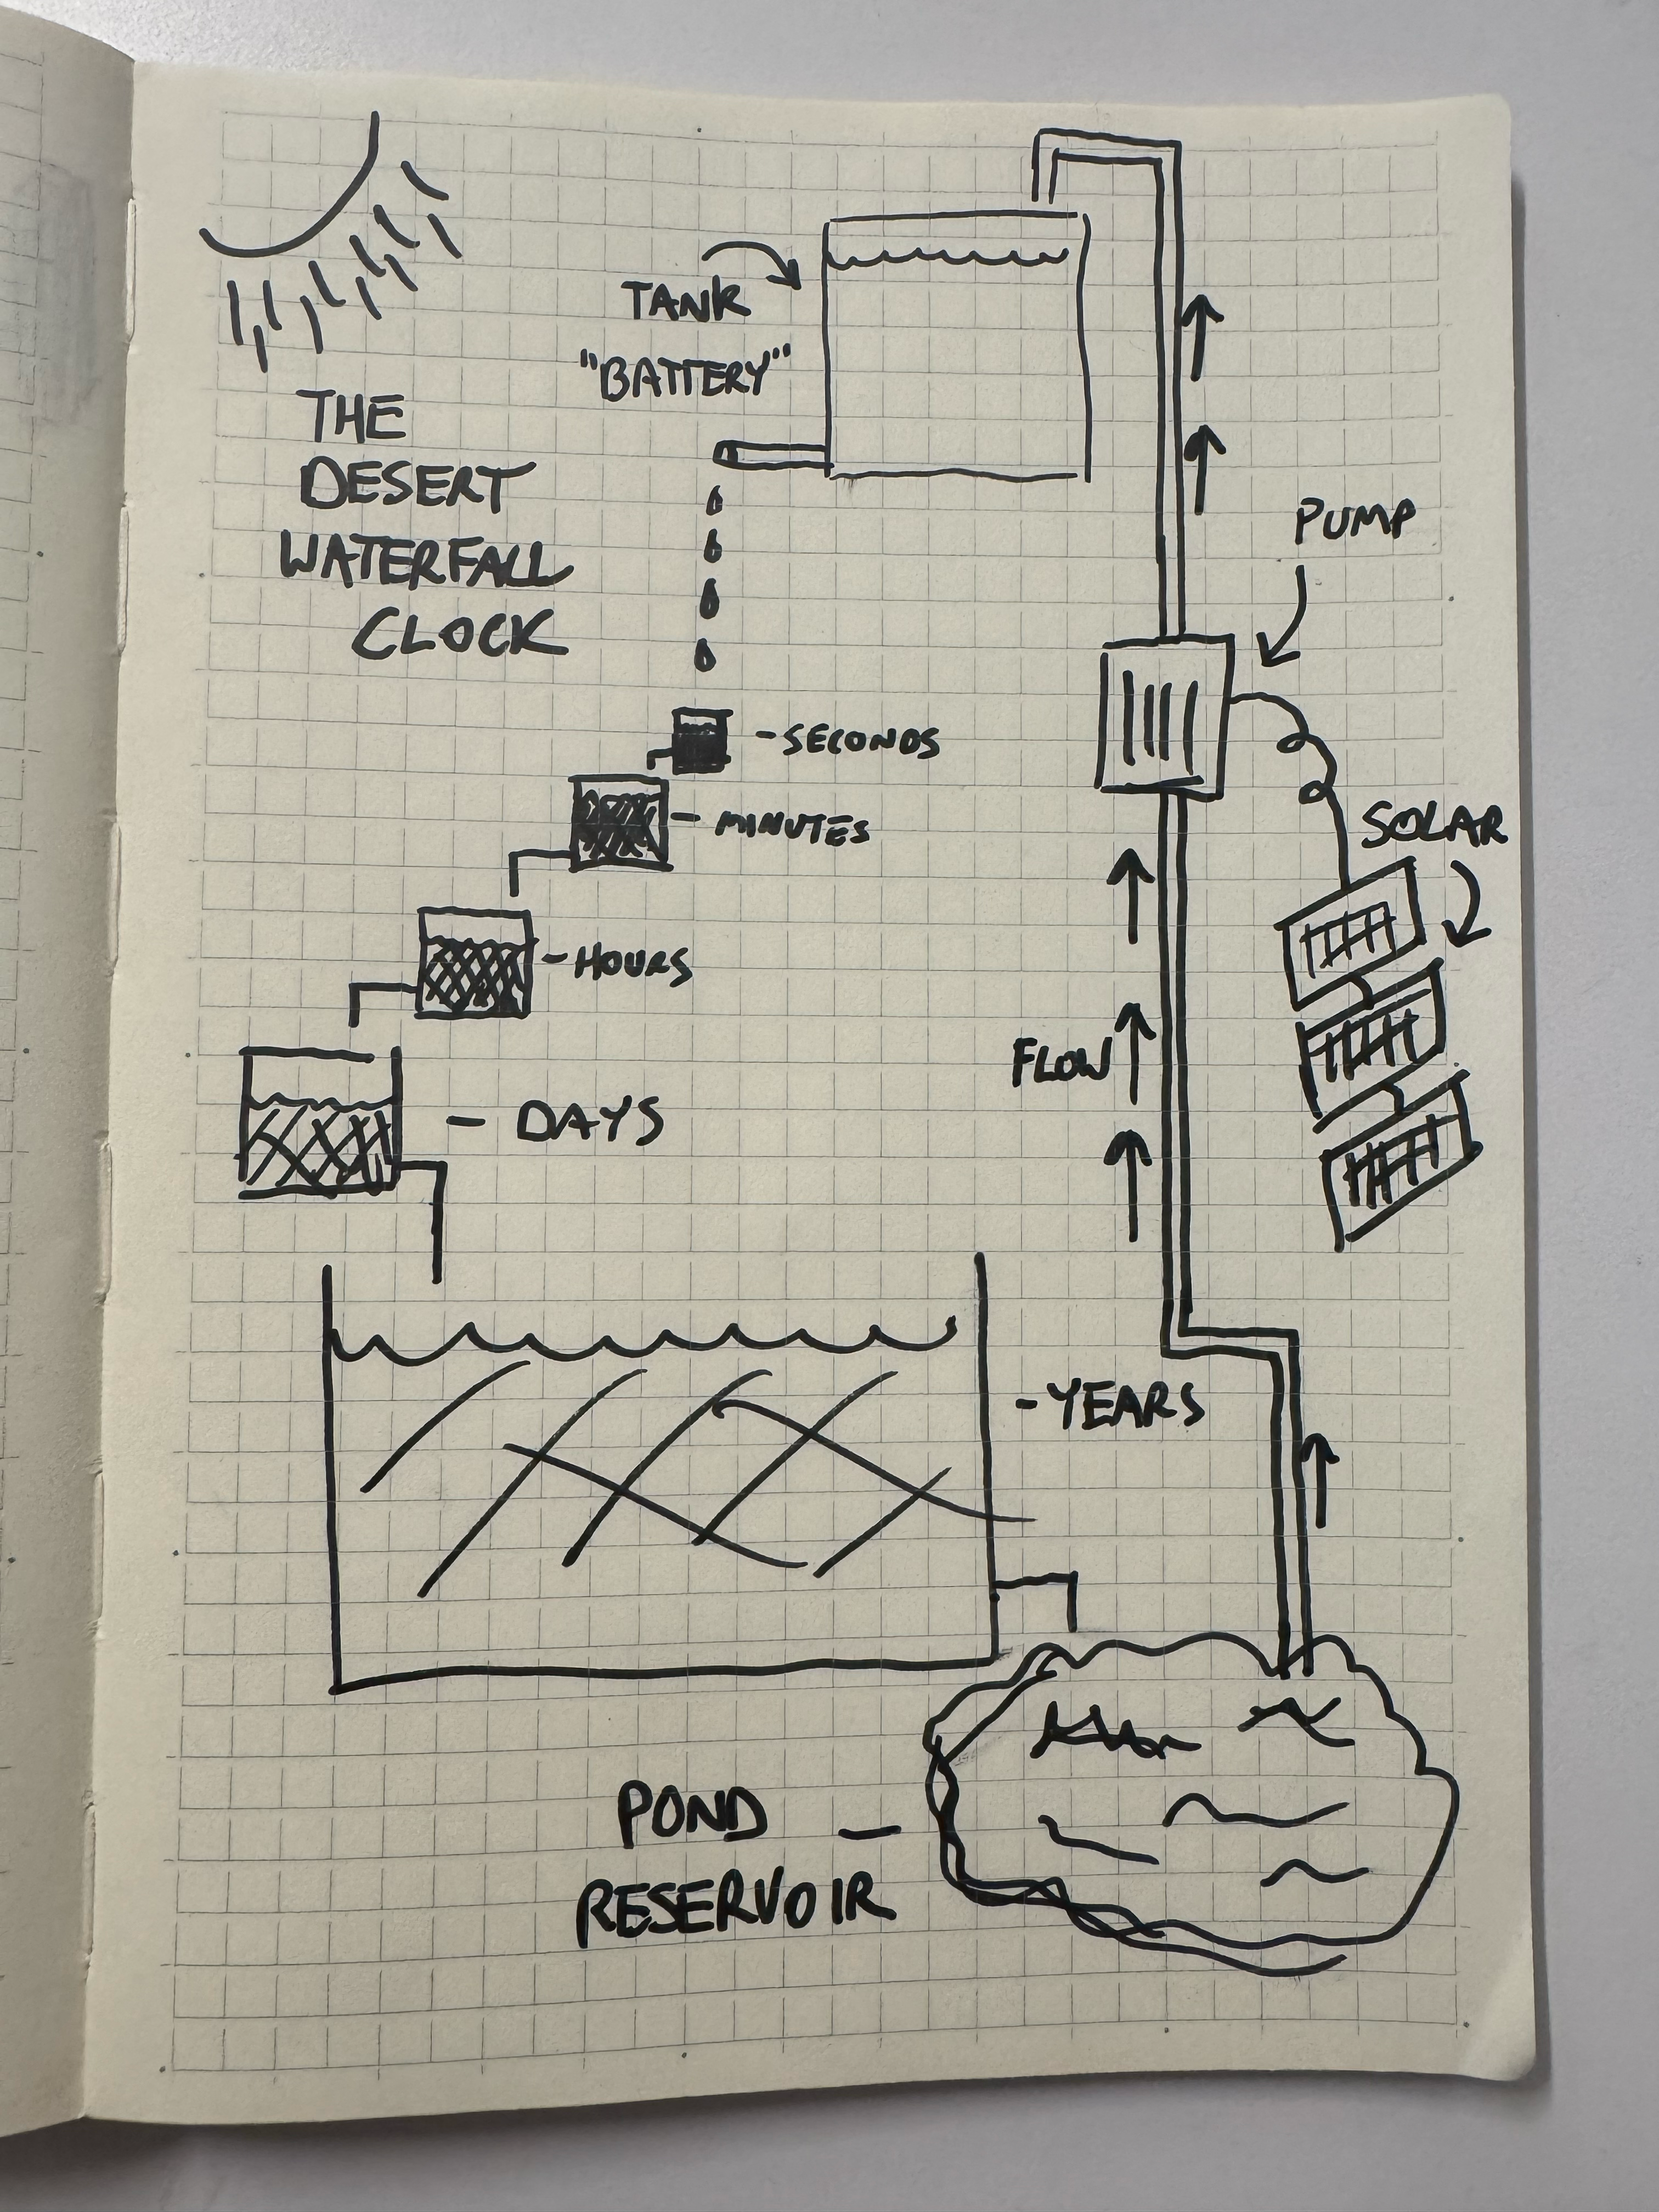 TANK
"BATTERY"
THE
DESERT
WATERFALL
CLOCK
PUMP
- SECONDS
- MINUTES
SOLAR
- HOURS
FLOW
- DAYS
- YEARS
POND -
RESERVOIR